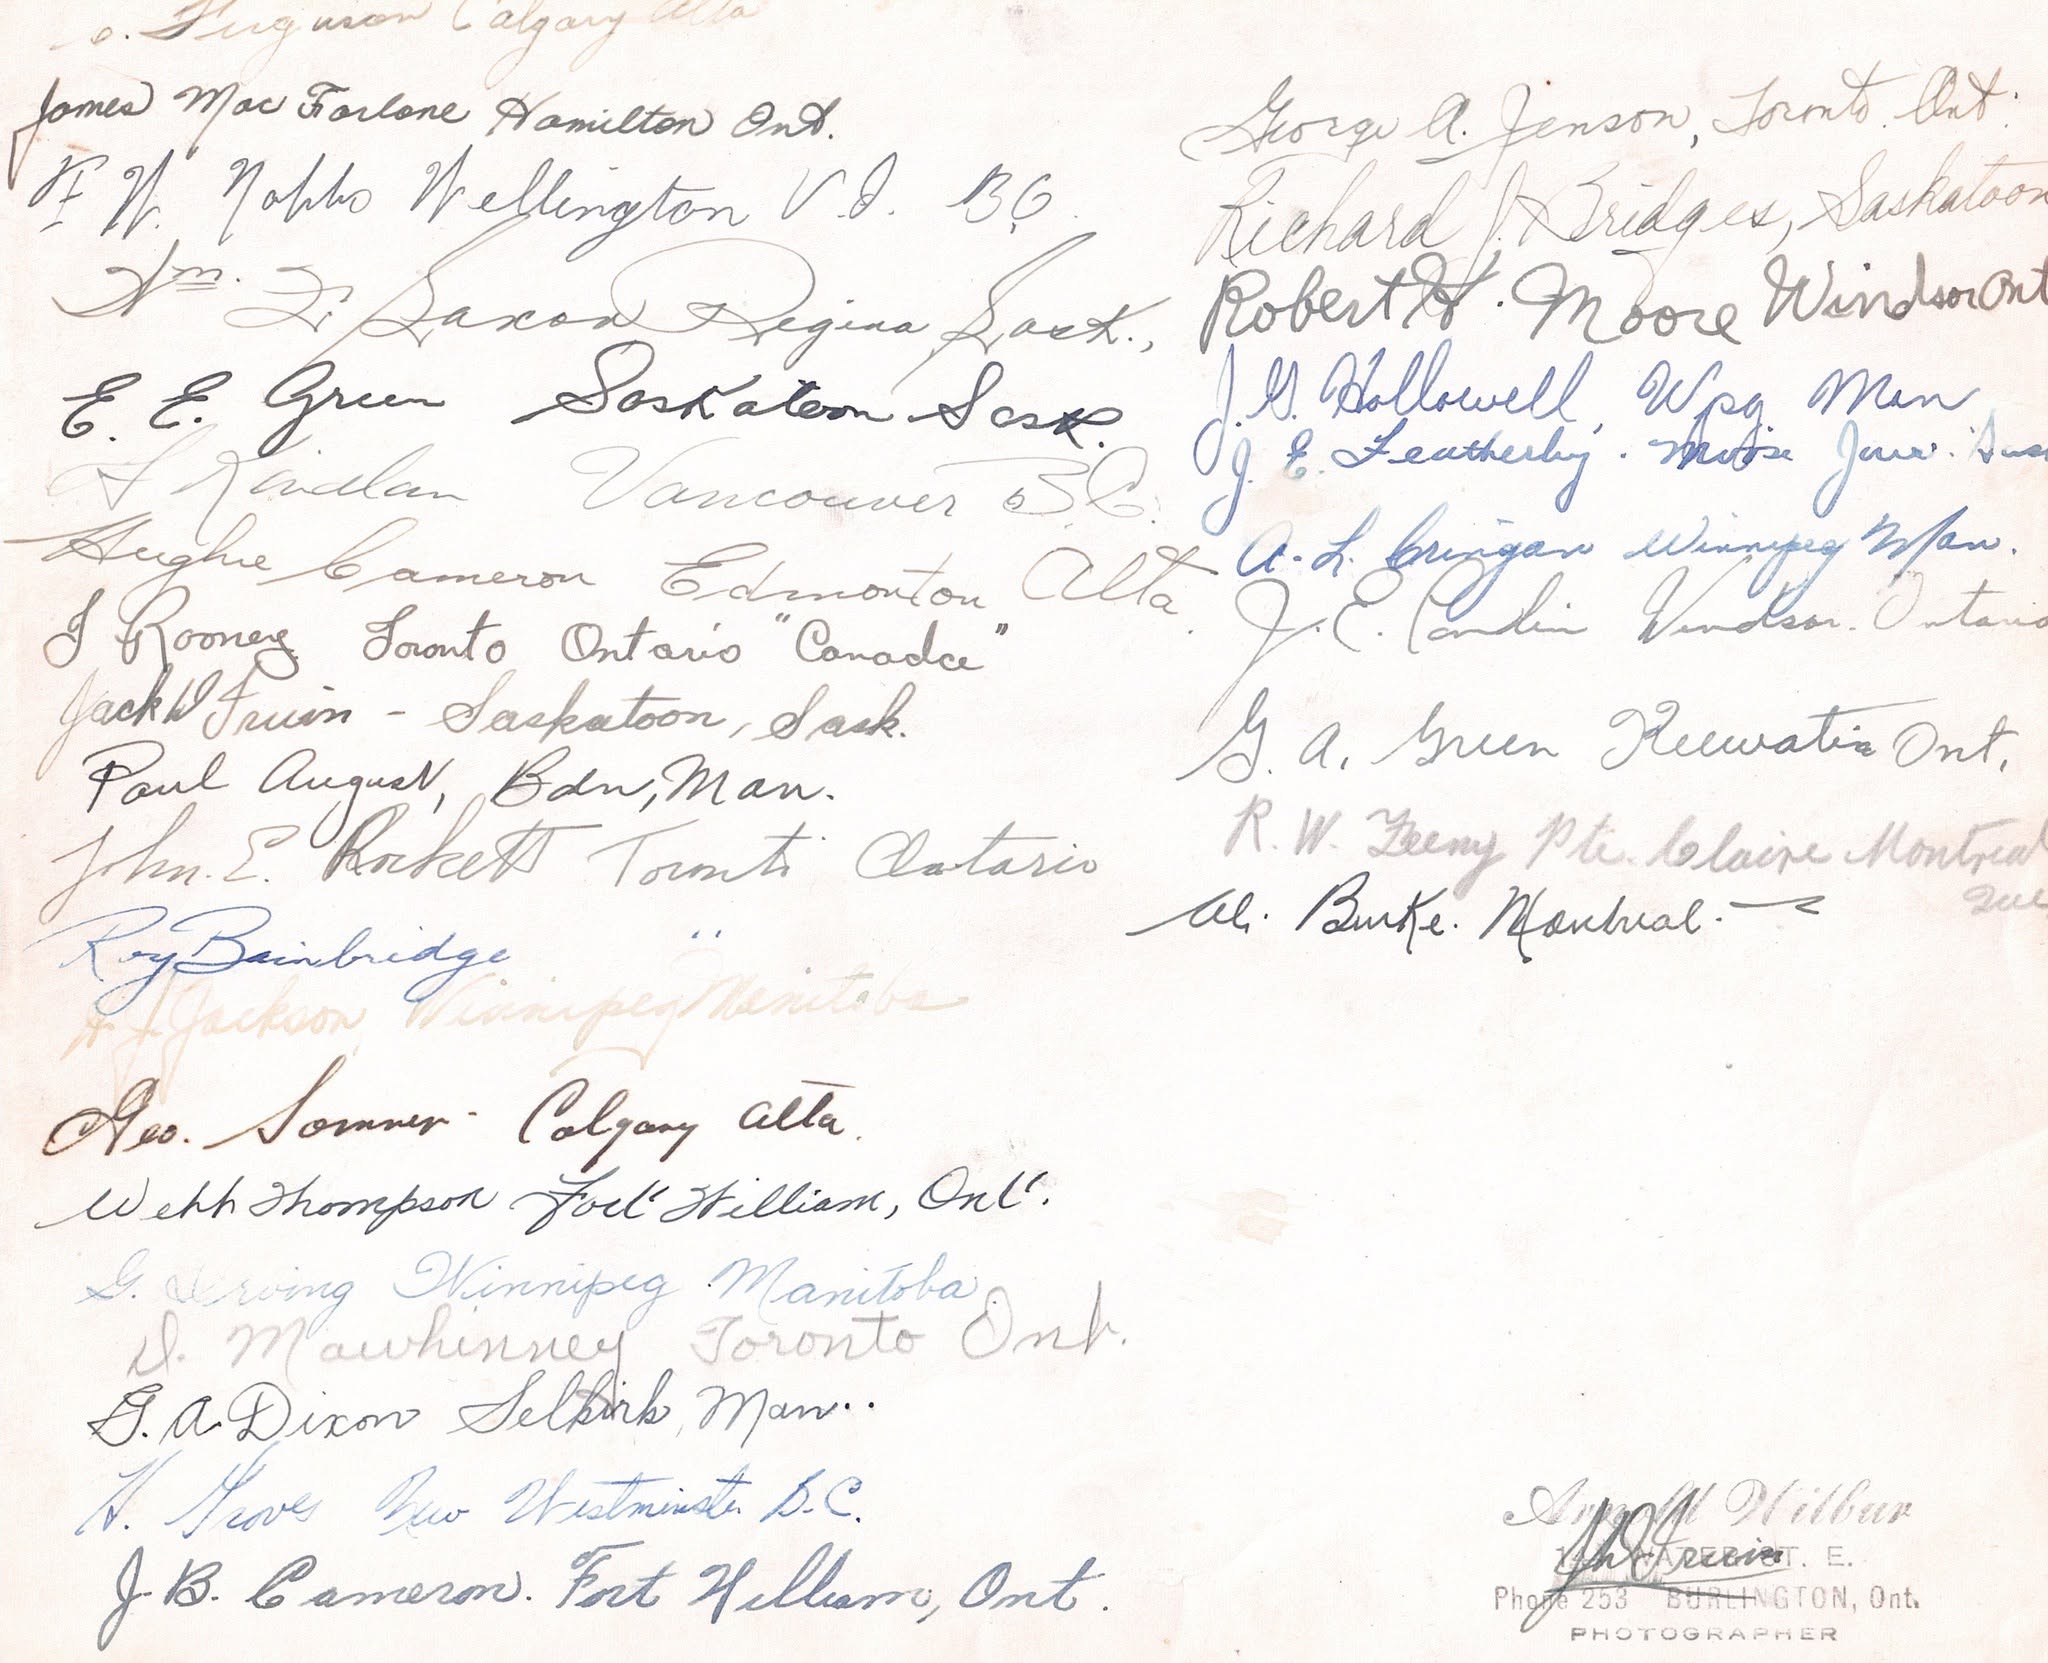 Ferguson Calgary Alta
James MacFarlane Hamilton Ont.
W. Nobbs Wellington V.I. B.C.
Wm. F. Saxon Regina Sask.,
E. E. Green Saskatoon Sask.
Vancouver B.C.
Hughie Cameron Edmonton Alta.
J Rooney Toronto Ontario "Canadae"
Jack W Irwin - Saskatoon, Sask.
Paul August, Bdn, Man.
John. E. Rockett Toronto Ontario
Roy Bainbridge "
Jackson Winnipeg Manitoba
Geo. Somner - Calgary Alta.
Webb Thompson Fort William, Ont.
G. Irving Winnipeg Manitoba.
D. Mawhinney Toronto Ont.
G. A. Dixon Selkirk, Man..
H. Groves New Westminster B.C.
J. B. Cameron. Fort William, Ont.
George A. Jenson, Toronto. Ont.
Richard J. Bridges, Saskatoon
Robert H. Moore Windsor Ont
J. G. Hollowell, Wpg Man
J. E. Featherby. Moose Jaw. Sask
A. L. Cringan Winnipeg Man.
J. E. Windsor. Ontario
G. A. Green Keewatin Ont.
R. W. Feeny Pte. Claire Montreal
Que
Al. Burke. Montreal. —
Arnold Wilbur
WATER ST. E.
Phone 253 BURLINGTON, Ont.
PHOTOGRAPHER